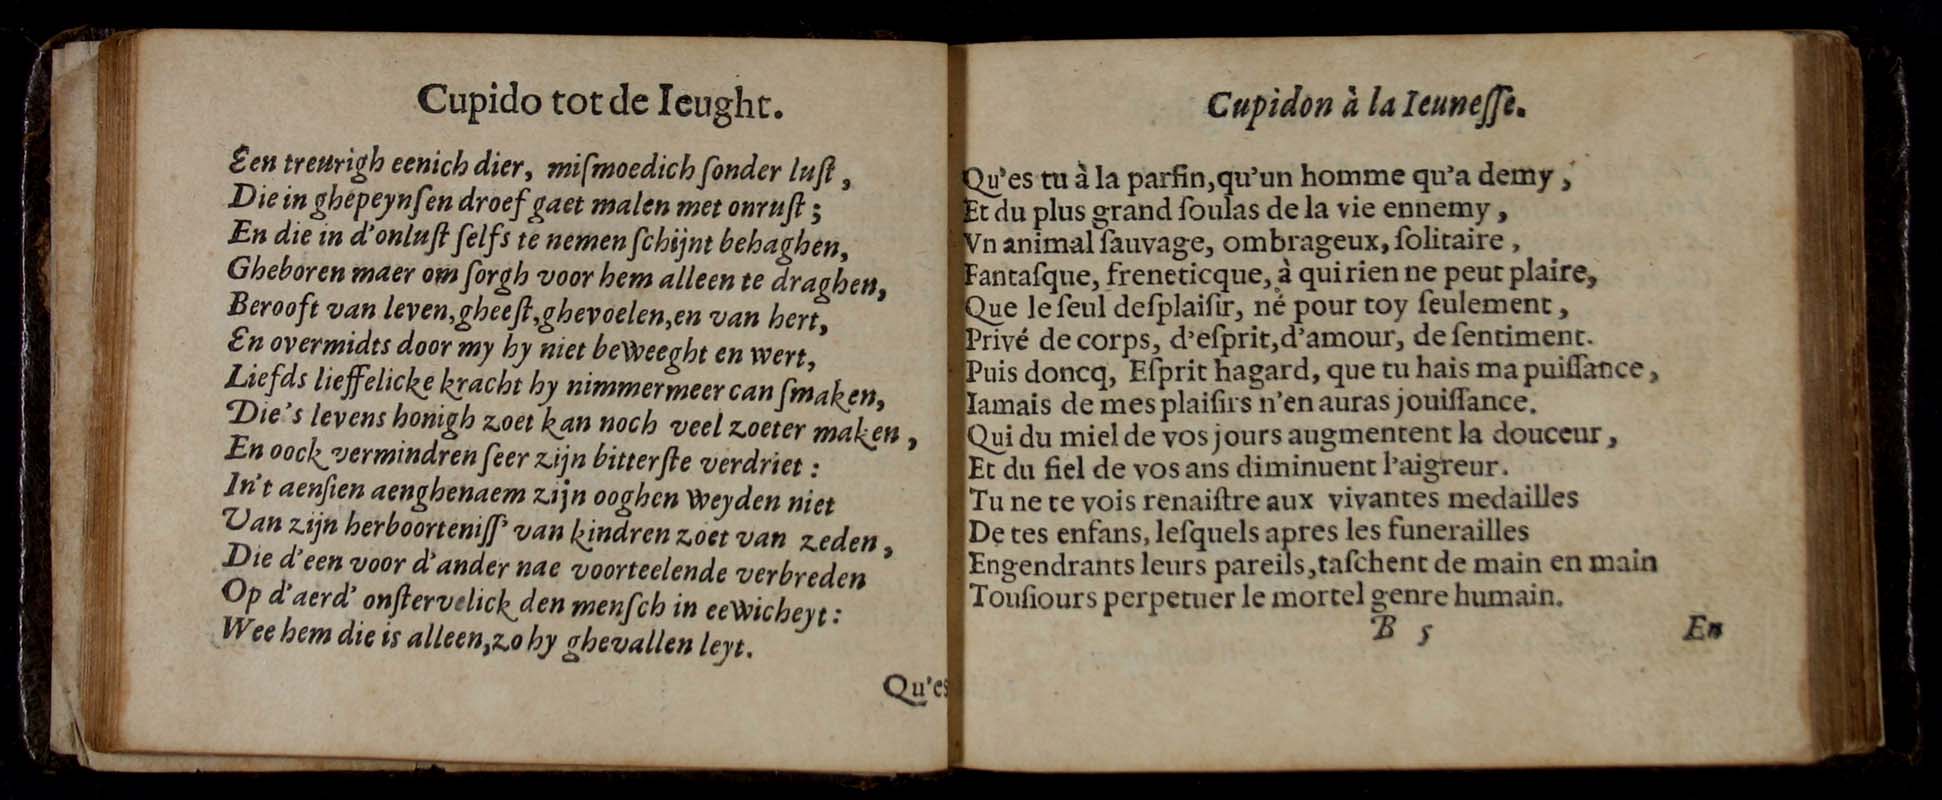 Cupido tot de Ieught.
Een treurigh eenich dier, miſmoedich ſonder luſt,
Die in ghepeynſen droef gaet malen met onruſt;
En die in d'onluſt ſelfs te nemen ſchijnt behaghen,
Gheboren maer om ſorgh voor hem alleen te draghen,
Berooft van leven, gheeſt, ghevoelen, en van hert,
En overmidts door my hy niet beweeght en wert,
Liefds lieffelicke kracht hy nimmermeer can ſmaken,
Die's levens honigh zoet kan noch veel zoeter maken,
En oock vermindren ſeer zijn bitterſte verdriet:
In't aenſien aenghenaem zijn ooghen weyden niet
Van zijn herboorteniſſ' van kindren zoet van zeden,
Die d'een voor d'ander nae voorteelende verbreden
Op d'aerd' onſtervelick den menſch in eewicheyt:
Wee hem die is alleen, zo hy ghevallen leyt.
Qu'es
Cupidon à la Ieuneſſe.
Qu'es tu à la parfin, qu'un homme qu'a demy,
Et du plus grand ſoulas de la vie ennemy,
Vn animal ſauvage, ombrageux, ſolitaire,
Fantaſque, freneticque, à qui rien ne peut plaire,
Que le ſeul deſplaiſir, né pour toy ſeulement,
Privé de corps, d'eſprit, d'amour, de ſentiment.
Puis doncq, Eſprit hagard, que tu hais ma puiſſance,
Iamais de mes plaiſirs n'en auras jouiſſance.
Qui du miel de vos jours augmentent la douceur,
Et du fiel de vos ans diminuent l'aigreur.
Tu ne te vois renaiſtre aux vivantes medailles
De tes enfans, leſquels apres les funerailles
Engendrants leurs pareils, taſchent de main en main
Touſiours perpetuer le mortel genre humain.
B 5
En